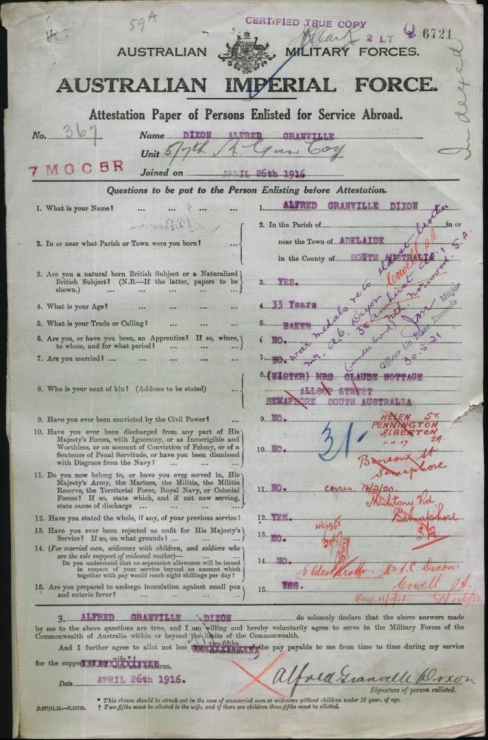 59A
CERTIFIED TRUE COPY
2 LT
6721
AUSTRALIAN MILITARY FORCES.
Indexed
AUSTRALIAN IMPERIAL FORCE.
Attestation Paper of Persons Enlisted for Service Abroad.
No. 367 Name DIXON ALFRED GRANVILLE
7 MGC 5R
Unit 5/7th M Gun Coy
Joined on APRIL 26th 1916
Questions to be put to the Person Enlisting before Attestation.
1. What is your Name? ... ... ... ...
1. ALFRED GRANVILLE DIXON
2. In or near what Parish or Town were you born? ...
2. In the Parish of in or
near the Town of ADELAIDE
in the County of SOUTH AUSTRALIA
3. Are you a natural born British Subject or a Naturalized
British Subject? (N.B.—If the latter, papers to be
shown.) ... ...
3. YES.
4. What is your Age? ... ...
4. 33 Years
5. What is your Trade or Calling? ... ...
5. BAKER
6. Are you, or have you been, an Apprentice? If so, where,
to whom, and for what period? ...
6. NO.
7. Are you married? ... ...
7. NO.
war medals re to eldest brother
Mr. A.C. Dixon Cowell S.A.
Norwood. S.A.
Major
Officer i/c Base Records
8. Who is your next of kin? (Address to be stated) ...
8. (SISTER) MRS. CLAUDE NOTTAGE
STREET
SEMAPHORE SOUTH AUSTRALIA
9. Have you ever been convicted by the Civil Power? ...
9. NO.
HELEN ST.
PENNINGTON
ALBERTON
SA.
10. Have you ever been discharged from any part of His
Majesty's Forces, with Ignominy, or as Incorrigible and
Worthless, or on account of Conviction of Felony, or of a
Sentence of Penal Servitude, or have you been dismissed
with Disgrace from the Navy? ...
10. NO.
31-
Semaphore
11. Do you now belong to, or have you ever served in, His
Majesty's Army, the Marines, the Militia, the Militia
Reserve, the Territorial Force, Royal Navy, or Colonial
Forces? If so, state which, and if not now serving,
state cause of discharge ...
11. NO
12. Have you stated the whole, if any, of your previous service?
12. YES.
Semaphore
SA
13. Have you ever been rejected as unfit for His Majesty's
Service? If so, on what grounds? ...
13. NO.
14. (For married men, widowers with children, and soldiers who
are the sole support of widowed mother)—
Do you understand that no separation allowance will be
issued in respect of your service beyond an amount which
together with pay would reach eight shillings per day?
14.
Eldest brother Mr A.C. Dixon
Cowell SA
15. Are you prepared to undergo inoculation against small pox
and enteric fever? ...
15. YES.
3. ALFRED GRANVILLE DIXON do solemnly declare that the above answers
made by me to the above questions are true, and I am willing and hereby voluntarily agree to serve in the Military Forces of the
Commonwealth of Australia within or beyond the limits of the Commonwealth.
And I further agree to allot not less the pay payable to me from time to time during my service
for the support
Date APRIL 26th 1916.
Alfred Granville Dixon
Signature of person enlisted.
* This clause should be struck out in the case of unmarried men or widowers without children under 18 years of age.
† Two-fifths must be allotted to the wife, and if there are children three-fifths must be allotted.